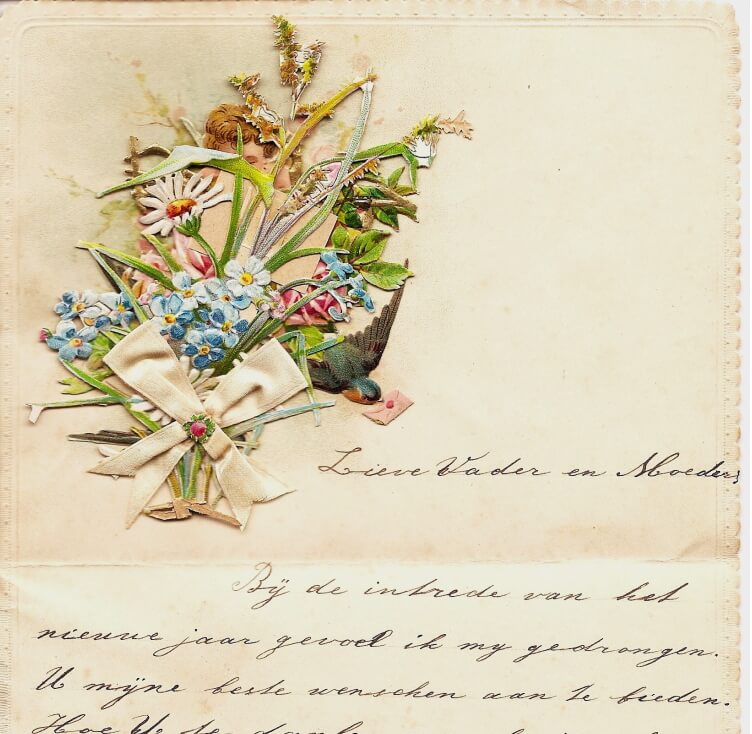 Lieve Vader en Moeder,
Bij de intrede van het
nieuwe jaar gevoel ik my gedrongen.
U mijne beste wenschen aan te bieden.
Hoe U te dank